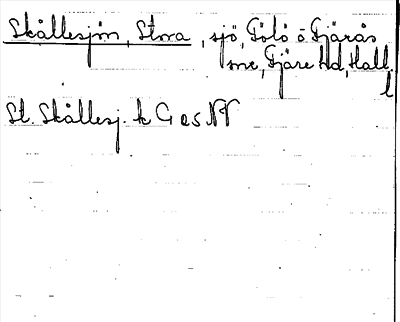 Skållesjön, Stora, sjö, Gölö o Fjärås
snr, Fjäre hd, Hall.
l
St. Skållesj. k G os NV